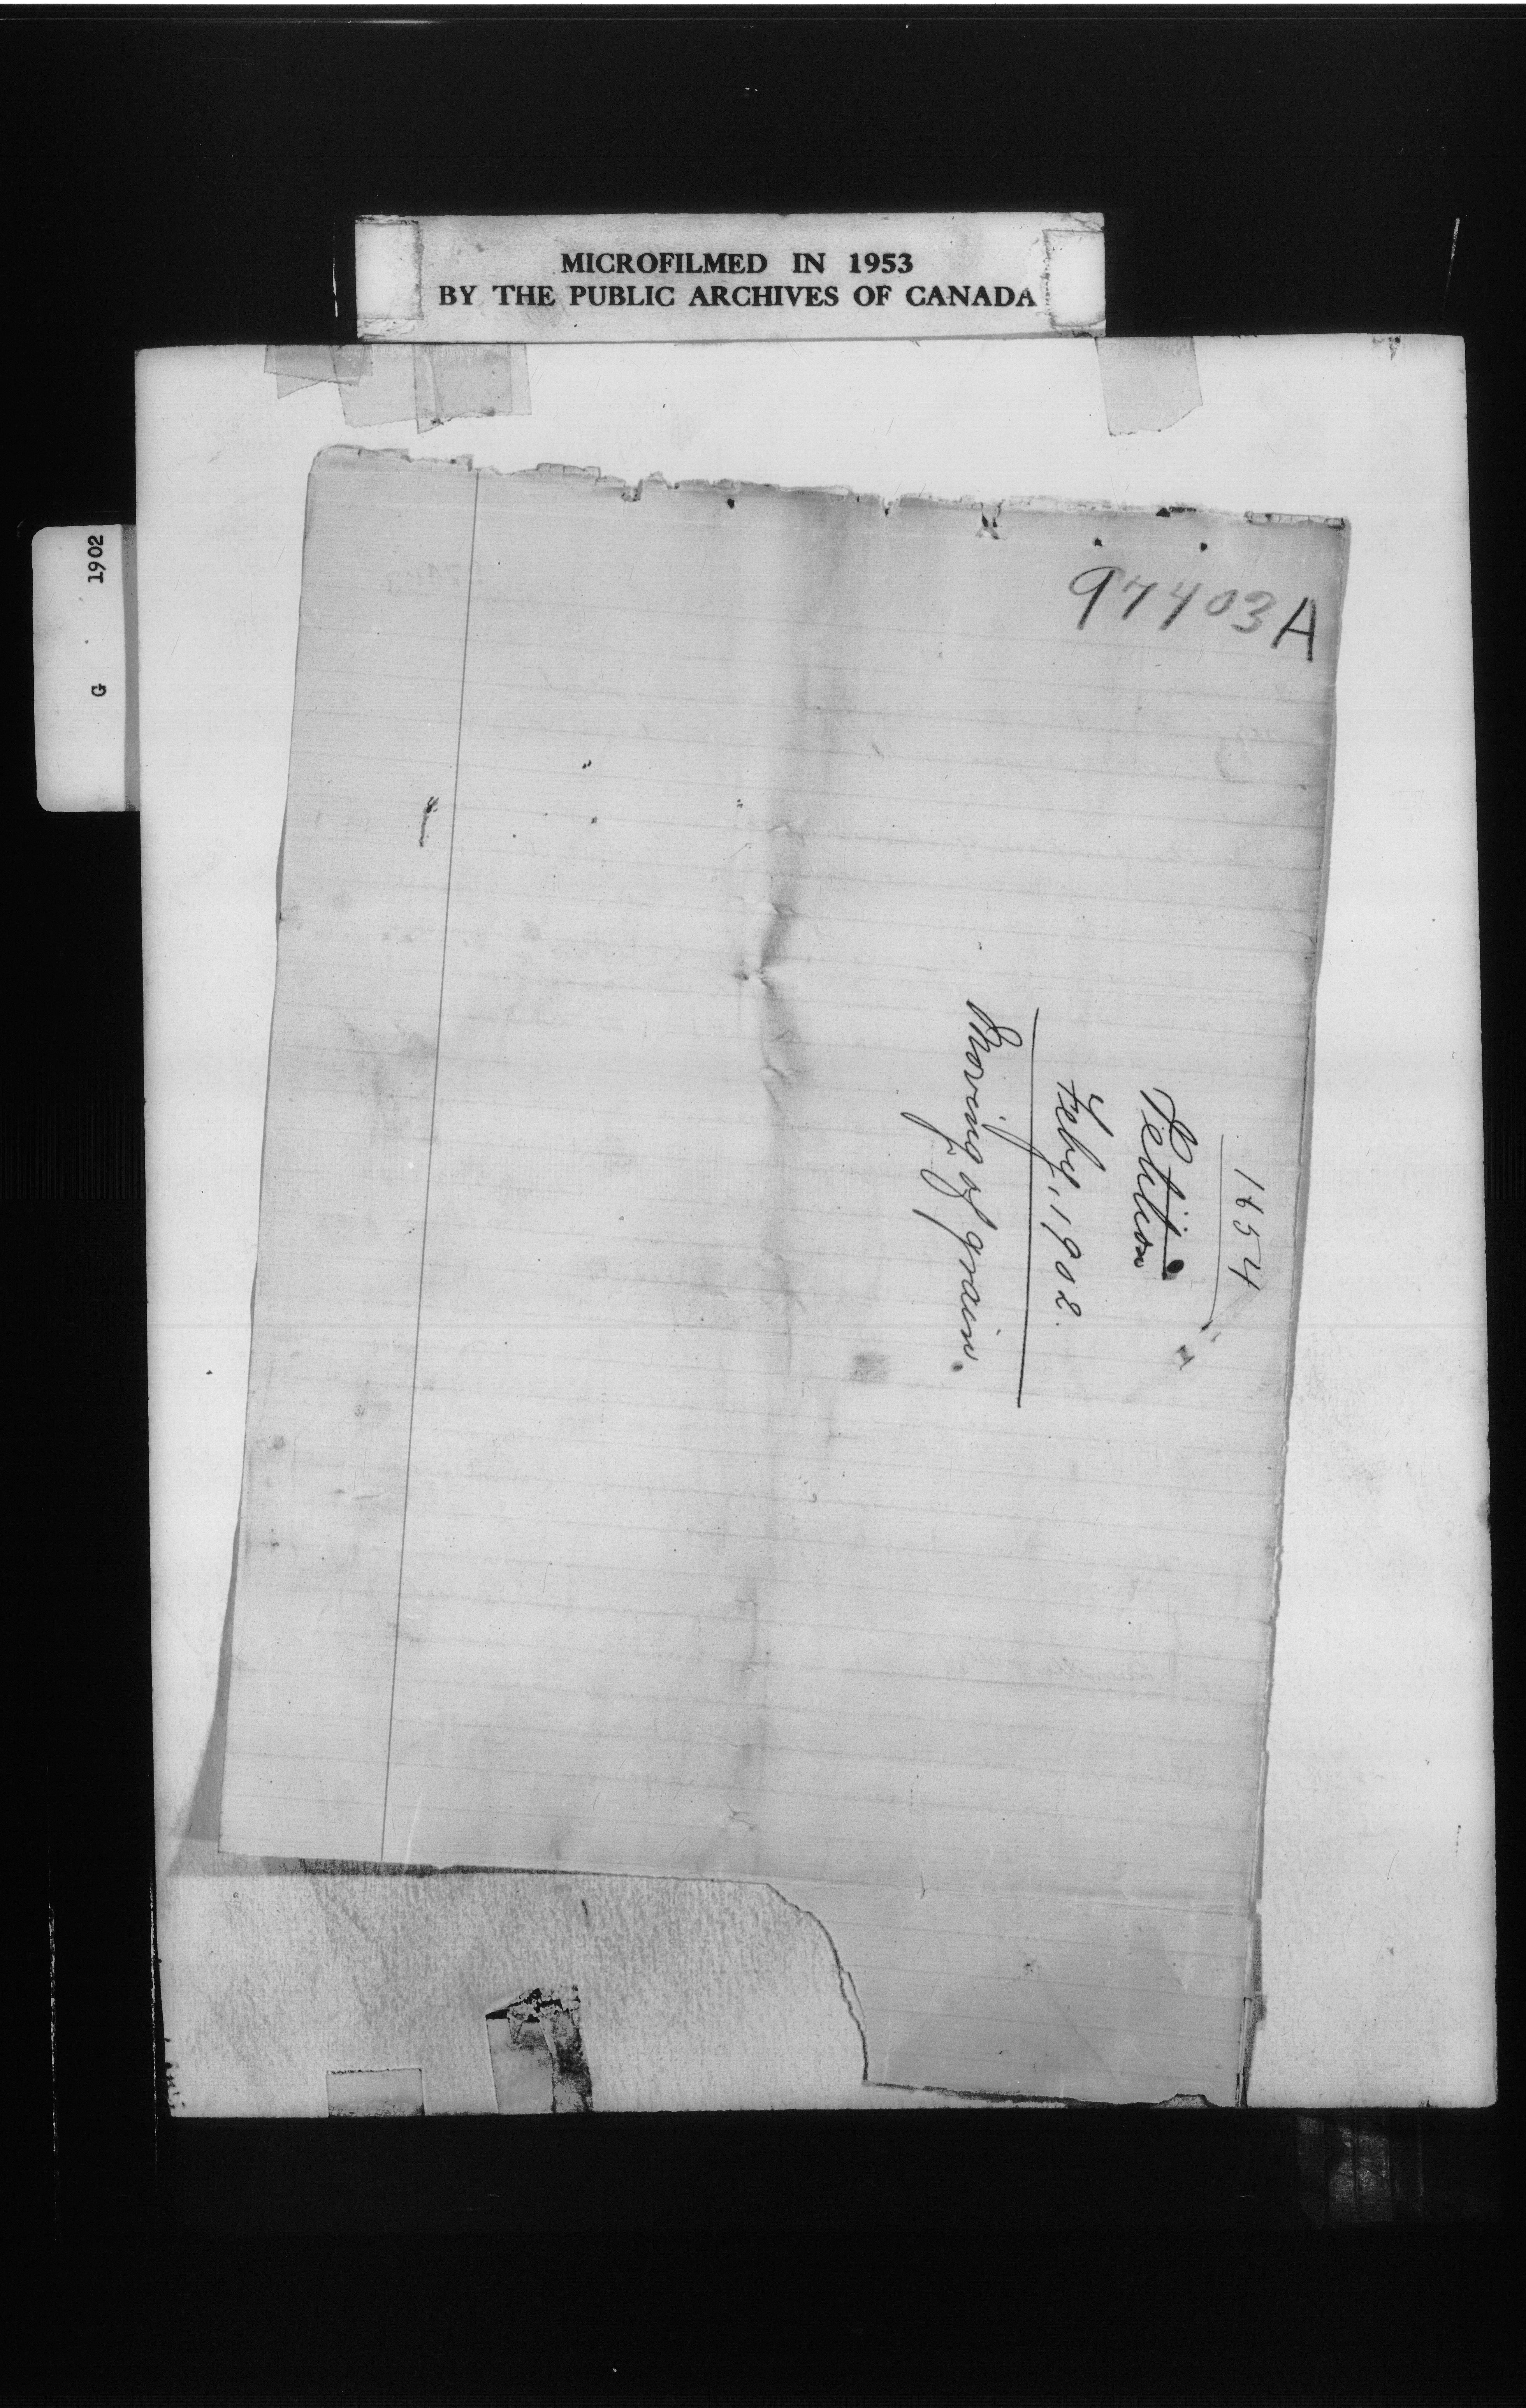 MICROFILMED IN 1953
BY THE PUBLIC ARCHIVES OF CANADA
G 1902
97403A
1654
Petition
Feby, 1902.
Moving of grain.